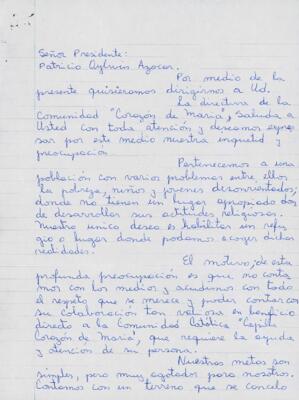 Señor Presidente:
Patricio Aylwin Azocar.
Por medio de la
presente quisiéramos dirigirnos a Ud.
La directiva de la
Comunidad "Corazón de María", saluda a
Usted con toda atención y deseamos expre
sar por este medio nuestra inquietud y
preocupación
Pertenecemos a una
población con varios problemas entre ellos
la pobreza, niños y jóvenes desorientados;
donde no tienen un lugar apropiado don
de desarrollar sus actitudes religiosas.
Nuestro unico deseo es habilitar un refu
gio o lugar donde podamos acoger dichas
realidades.
El motivo, de esta
profunda preocupación es que no conta
mos con los medios y acudimos con todo
el respeto que se merece y poder contar con
su colaboración tan valiosa en beneficio
directo a la Comunidad Católica "Capilla
Corazón de María", que requiere la ayuda
y atención de su persona.
Nuestras metas son
simples, pero muy agotador para nosotros.
Contamos con un terreno que se